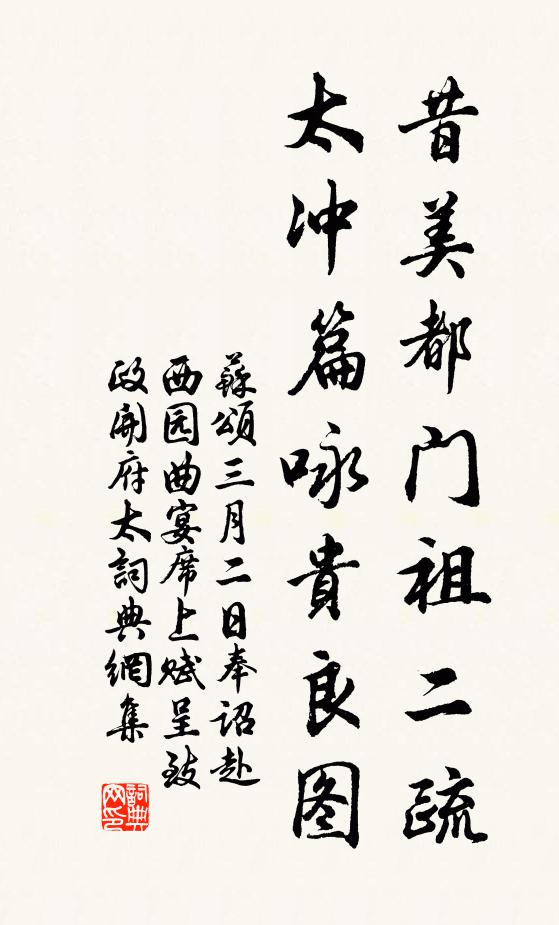 昔美都门祖二疏
太冲篇咏貴良图
蘇頌三月二日奉诏赴
西园曲宴席上赋呈致
政開府太詞典網集
詞典
网印